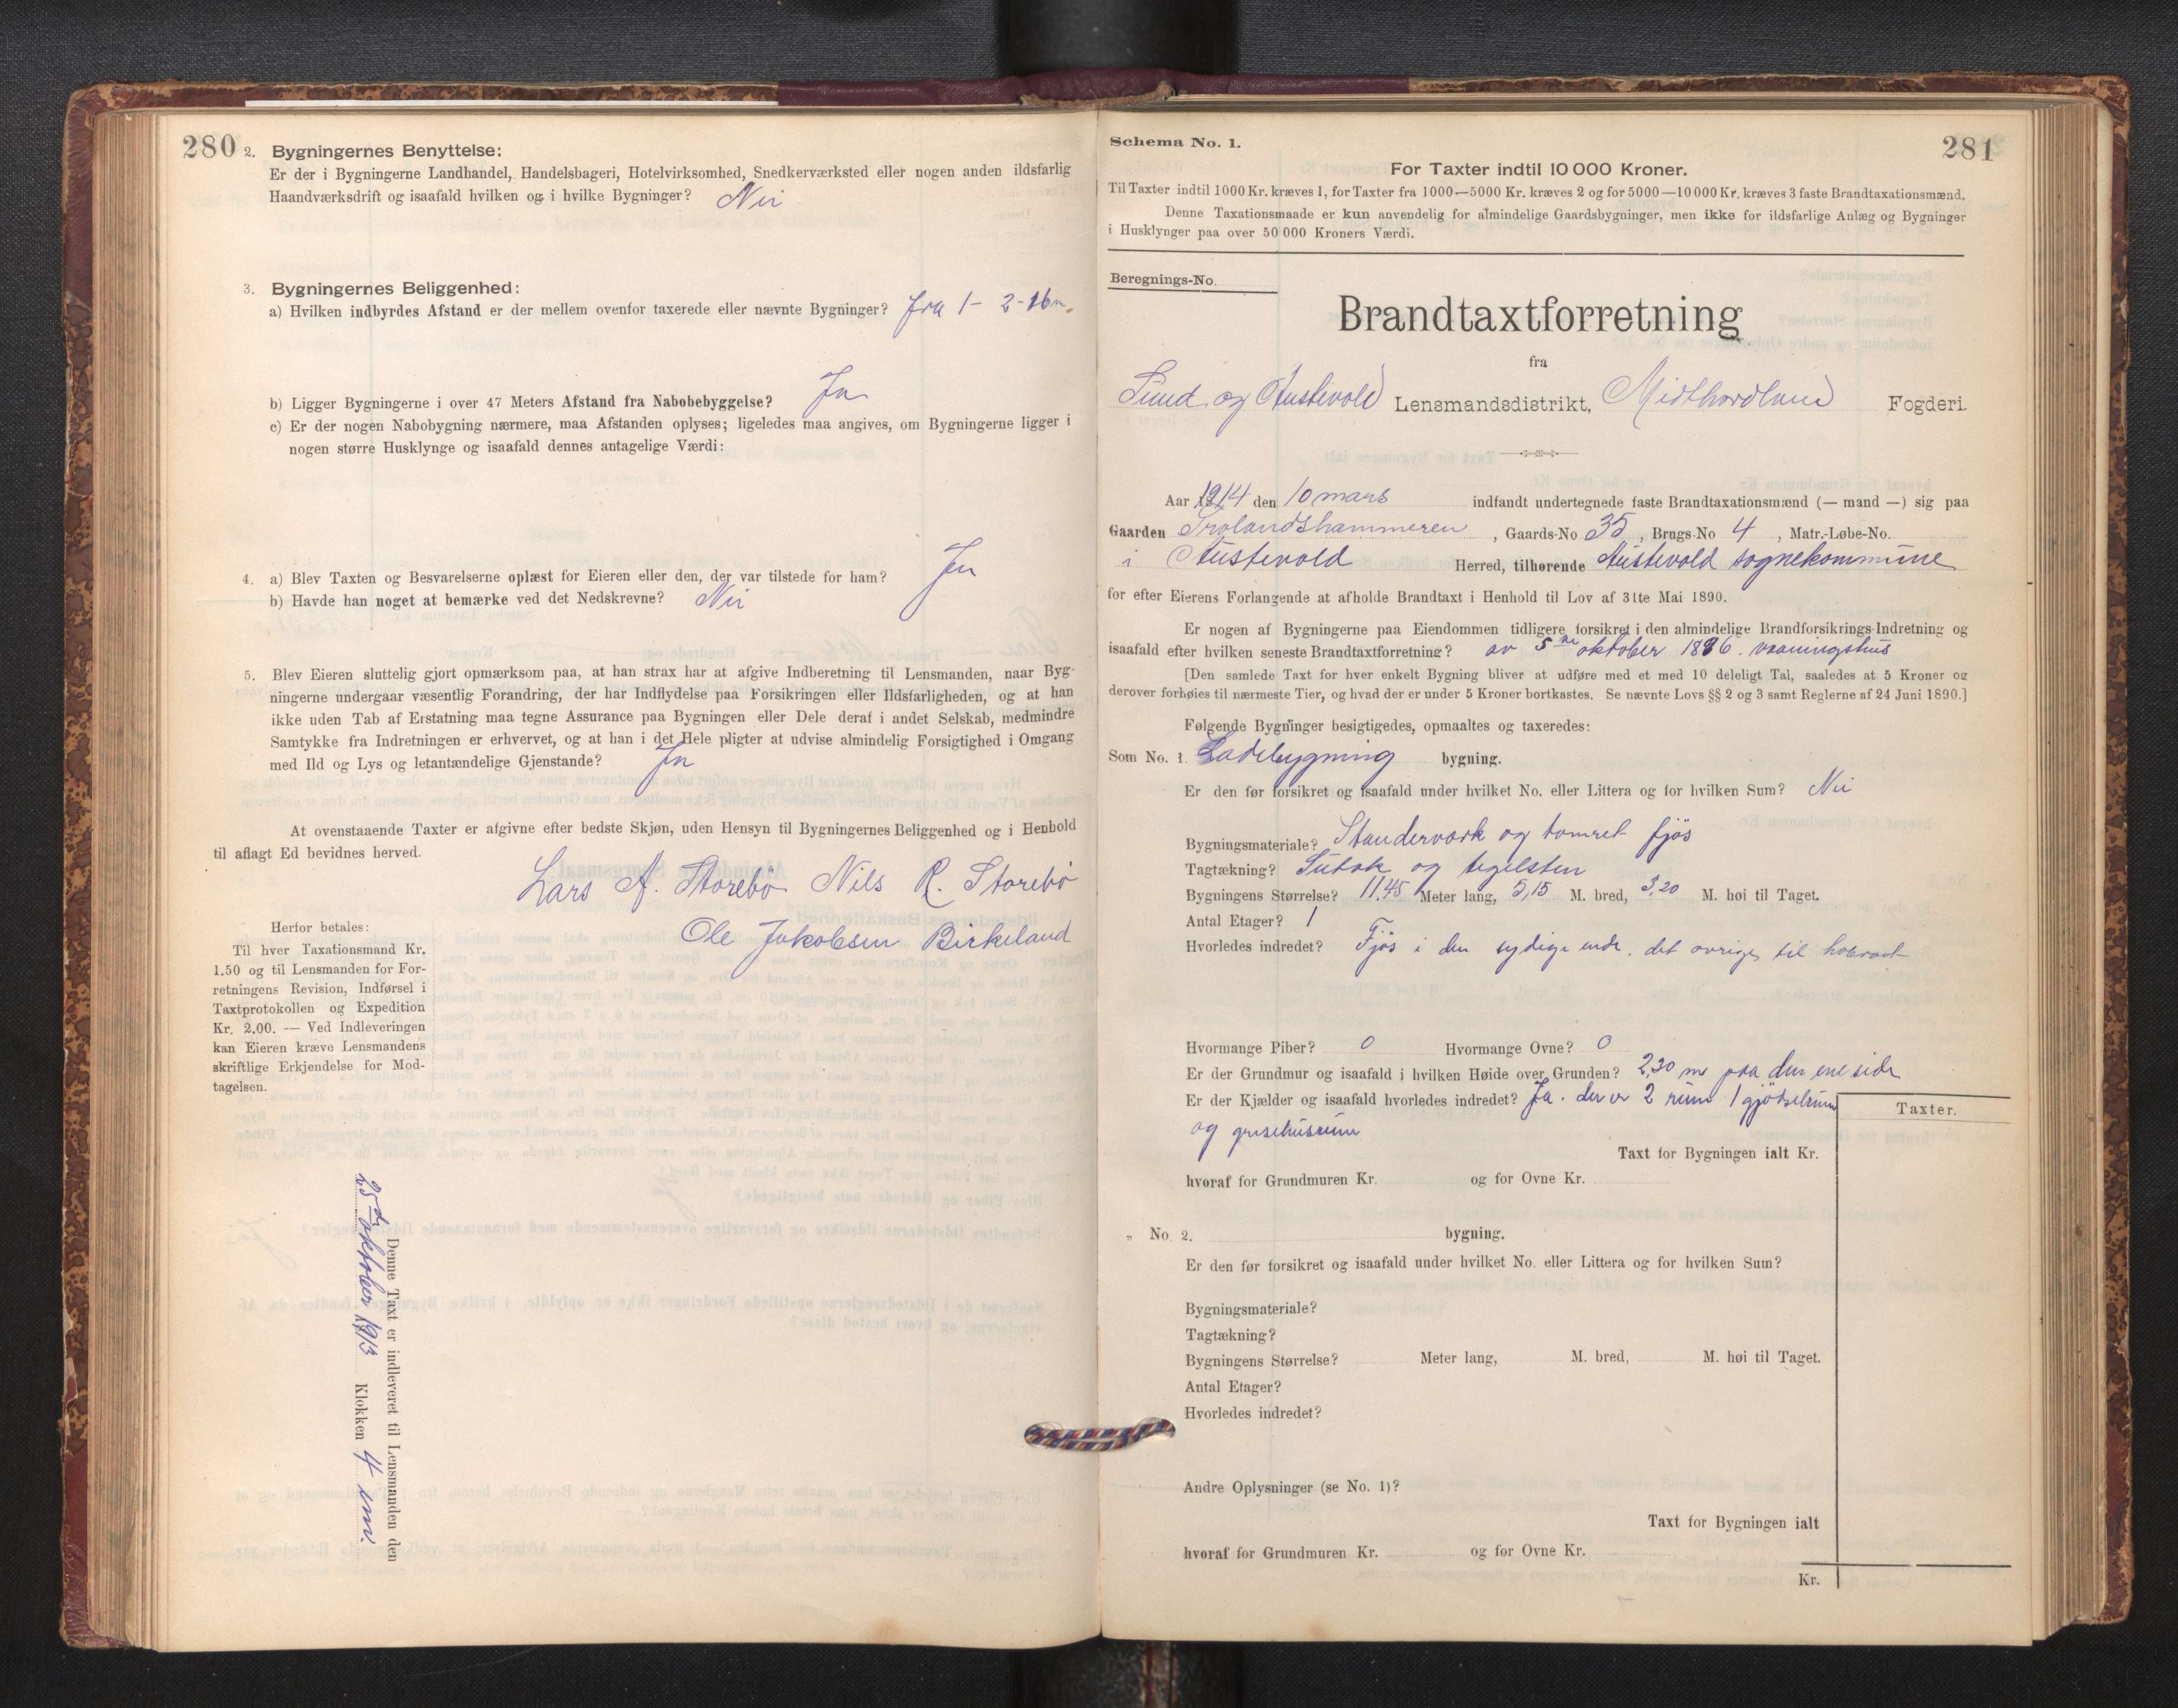 280
2. Bygningernes Benyttelse:
Er der i Bygningerne Landhandel, Handelsbageri, Hotelvirksomhed, Snedkerværksted eller nogen anden ildsfarlig
Haandværksdrift og isaafald hvilken og i hvilke Bygninger? Nei
3. Bygningernes Beliggenhed:
a) Hvilken indbyrdes Afstand er der mellem ovenfor taxerede eller nævnte Bygninger? fra 1 - 2 - 16 m.
b) Ligger Bygningerne i over 47 Meters Afstand fra Nabobebyggelse? Ja
c) Er der nogen Nabobygning nærmere, maa Afstanden oplyses; ligeledes maa angives, om Bygningerne ligger i
nogen større Husklynge og isaafald dennes antagelige Værdi:
4. a) Blev Taxten og Besvarelserne oplæst for Eieren eller den, der var tilstede for ham? Ja
b) Havde han noget at bemærke ved det Nedskrevne? Nei
5. Blev Eieren sluttelig gjort opmærksom paa, at han strax har at afgive Indberetning til Lensmanden, naar Byg-
ningerne undergaar væsentlig Forandring, der har Indflydelse paa Forsikringen eller Ildsfarligheden, og at han
ikke uden Tab af Erstatning maa tegne Assurance paa Bygningen eller Dele deraf i andet Selskab, medmindre
Samtykke fra Indretningen er erhvervet, og at han i det Hele pligter at udvise almindelig Forsigtighed i Omgang
med Ild og Lys og letantændelige Gjenstande? Ja
At ovenstaaende Taxter er afgivne efter bedste Skjøn, uden Hensyn til Bygningernes Beliggenhed og i Henhold
til aflagt Ed bevidnes herved.
Lars A. Storebö Nils R. Storebö
Ole Jakobsen Birkeland
Herfor betales:
Til hver Taxationsmand Kr.
1.50 og til Lensmanden for For-
retningens Revision, Indførsel i
Taxtprotokollen og Expedition
Kr. 2.00. — Ved Indleveringen
kan Eieren kræve Lensmandens
skriftlige Erkjendelse for Mod-
tagelsen.
Denne Taxt er indleveret til Lensmanden den
25de oktober 1913 Klokken 4 em.
Schema No. 1.
281
For Taxter indtil 10 000 Kroner.
Til Taxter indtil 1000 Kr. kræves 1, for Taxter fra 1000—5000 Kr. kræves 2 og for 5000—10 000 Kr. kræves 3 faste Brandtaxationsmænd.
Denne Taxationsmaade er kun anvendelig for almindelige Gaardsbygninger, men ikke for ildsfarlige Anlæg og Bygninger
i Husklynger paa over 50 000 Kroners Værdi.
Beregnings-No.
Brandtaxtforretning
fra
Sund og Austevold Lensmandsdistrikt, Midthordland Fogderi.
Aar 1914 den 10 mars indfandt undertegnede faste Brandtaxationsmænd (— mand —) sig paa
Gaarden Trolandshammeren, Gaards-No 35, Brugs-No 4, Matr.-Løbe-No.
i Austevold Herred, tilhørende Austevold sognekommune
for efter Eierens Forlangende at afholde Brandtaxt i Henhold til Lov af 31te Mai 1890.
Er nogen af Bygningerne paa Eiendommen tidligere forsikret i den almindelige Brandforsikrings-Indretning og
isaafald efter hvilken seneste Brandtaxtforretning? av 5te oktober 1886. vaaningshus
[Den samlede Taxt for hver enkelt Bygning bliver at udføre med et med 10 deleligt Tal, saaledes at 5 Kroner og
derover forhøies til nærmeste Tier, og hvad der er under 5 Kroner bortkastes. Se nævnte Lovs §§ 2 og 3 samt Reglerne af 24 Juni 1890.]
Følgende Bygninger besigtigedes, opmaaltes og taxeredes:
Som No. 1. Ladebygning bygning.
Er den før forsikret og isaafald under hvilket No. eller Littera og for hvilken Sum? Nei
Bygningsmateriale? Standerværk og tømret fjøs
Tagtækning? Sutak og tegelsten
Bygningens Størrelse? 11,45 Meter lang, 5,15 M. bred, 3,20 M. høi til Taget.
Antal Etager? 1
Hvorledes indredet? Fjøs i den sydige ende. det øvrige til
Hvormange Piber? 0 Hvormange Ovne? 0
Er der Grundmur og isaafald i hvilken Høide over Grunden? 2,30 m paa den ene side
Er der Kjælder og isaafald hvorledes indredet? Ja. der er 2 rum 1 gjødselrum
og grisehusrum
Taxter.
Taxt for Bygningen ialt Kr.
hvoraf for Grundmuren Kr. og for Ovne Kr.
„ No. 2. bygning.
Er den før forsikret og isaafald under hvilket No. eller Littera og for hvilken Sum?
Bygningsmateriale?
Tagtækning?
Bygningens Størrelse? Meter lang, M. bred, M. høi til Taget.
Antal Etager?
Hvorledes indredet?
Andre Oplysninger (se No. 1)?
Taxt for Bygningen ialt
hvoraf for Grundmuren Kr. og for Ovne Kr.
Kr.